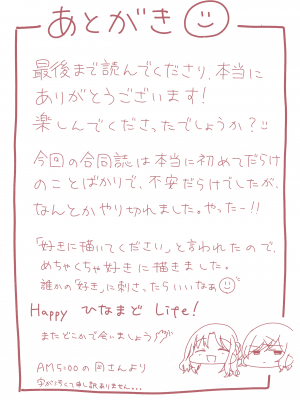 あとがき
最後まで読んでくださり、本当に
ありがとうございます！
楽しんでくださったでしょうか？
今回の合同誌は本当に初めてだらけ
のことばかりで、不安だらけでしたが、
なんとかやり切れました。やったー!!
「好きに描いてください」と言われたので、
めちゃくちゃ好きに描きました。
誰かの「好き」に刺さったらいいなぁ
Happy ひなまど Life!
またどこかで会いましょう
AM5:00の月さんより
字が汚くて申し訳ありません...